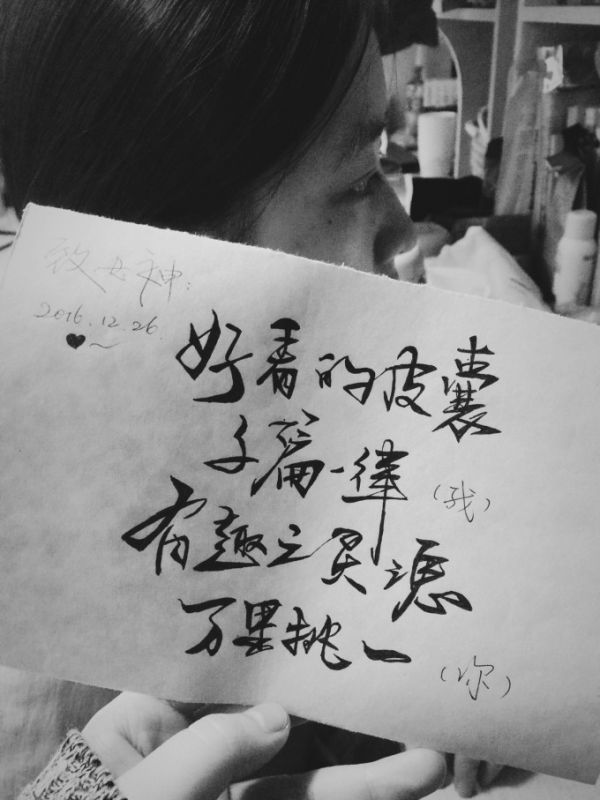 致女神:
2016.12.26.
♥~
好看的皮囊
千篇一律
(我)
有趣之灵魂
万里挑一
(你)